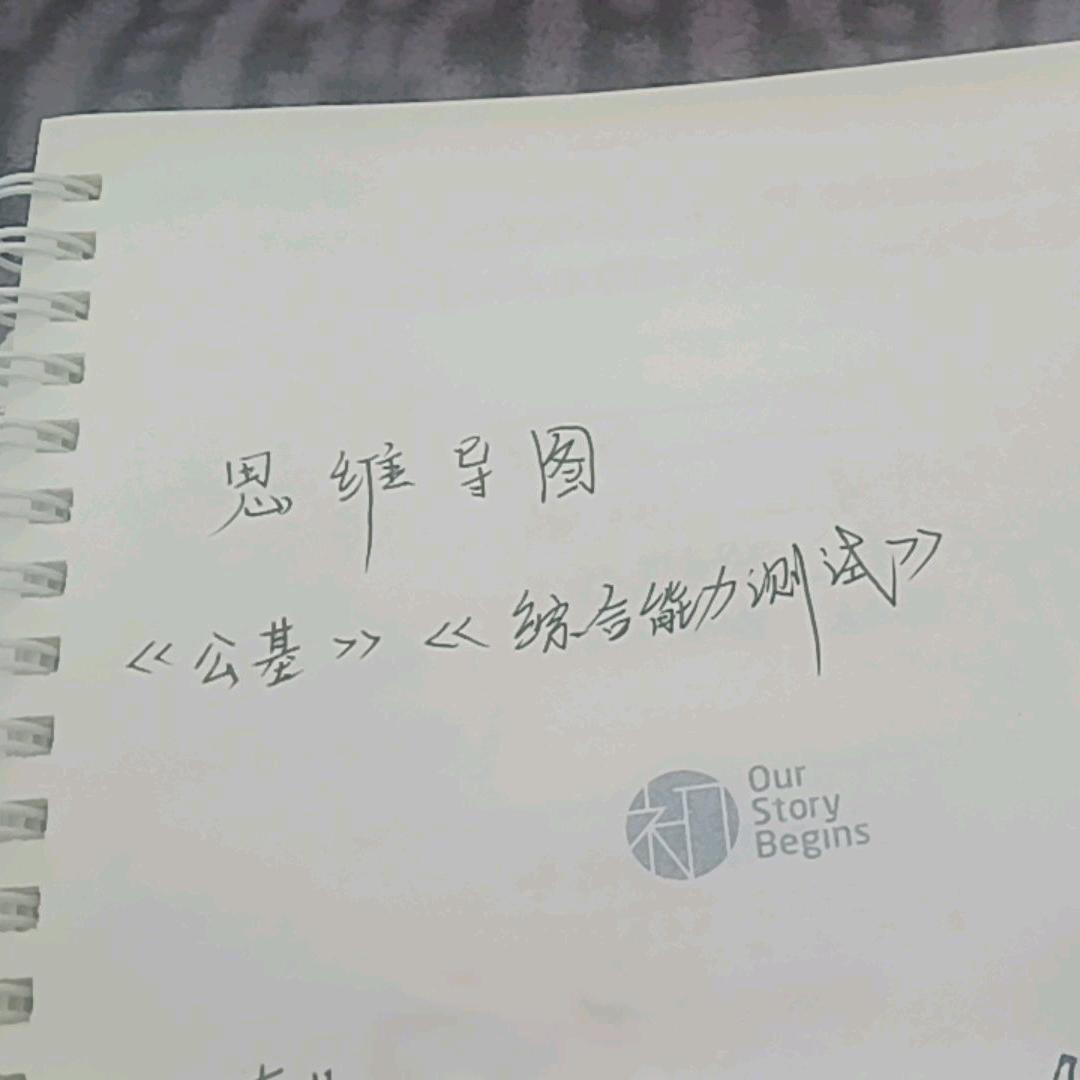 思维导图
《公基》《综合能力测试》
初
Our
Story
Begins